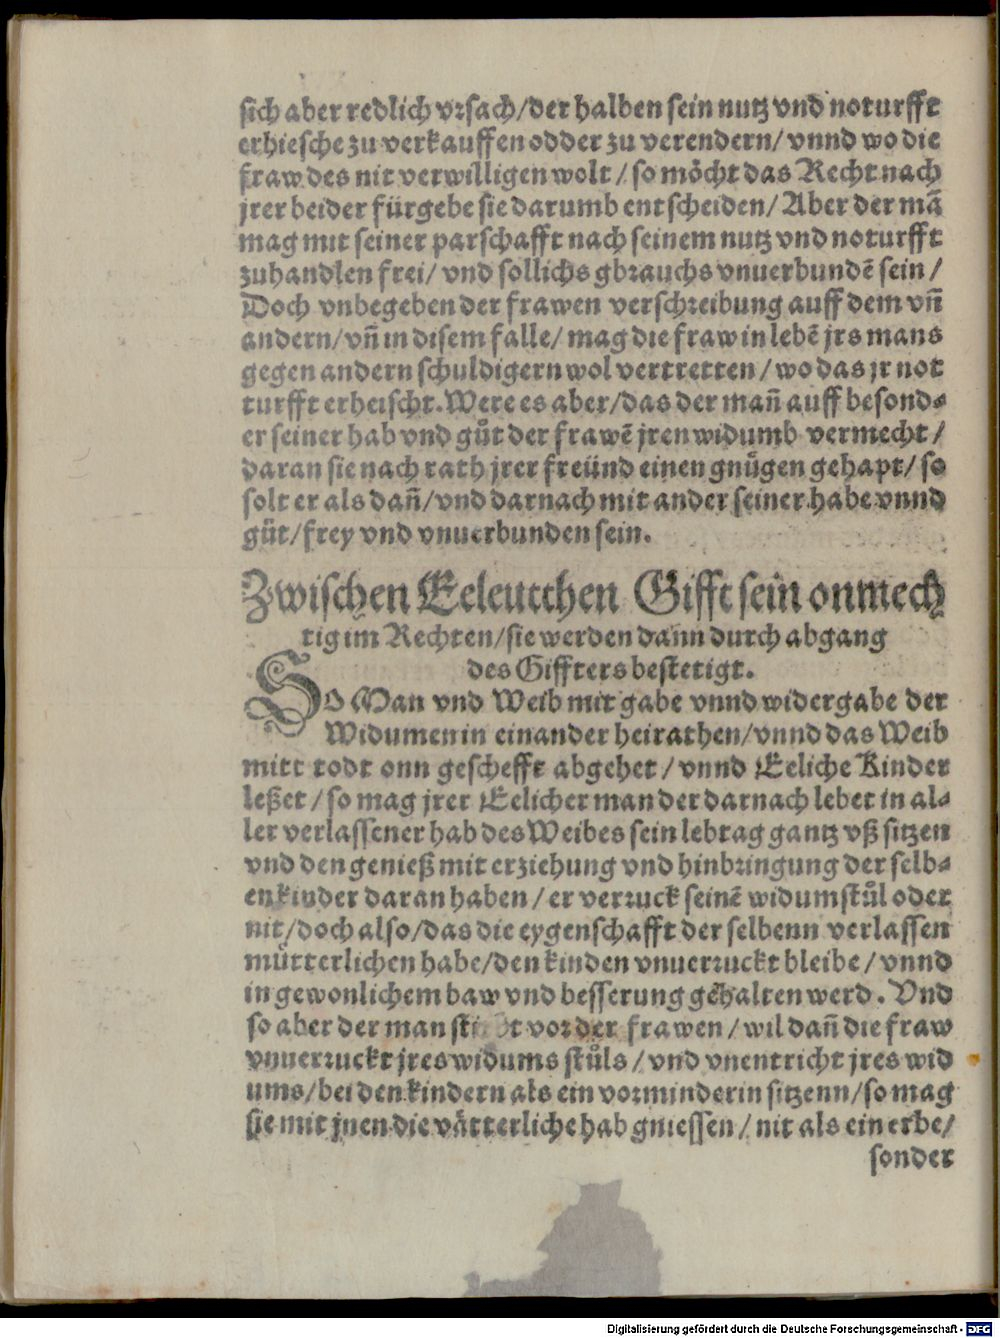 sich aber redlich vrsach/der halben sein nutz vnd noturfft
erhiesche zu verkauffen odder zu verendern/ vnnd wo die
fraw des nit verwilligen wolt / so möcht das Recht nach
jrer beider fürgebe sie darumb entscheiden/ Aber der mā
mag mit seiner parschafft nach seinem nutz vnd noturfft
zuhandlen frei/ vnd sollichs gbrauchs vnuerbundē sein /
Doch vnbegeben der frawen verschreibung auff dem vñ
andern/vñ in disem falle/ mag die fraw in lebē jrs mans
gegen andern schuldigern wol vertretten / wo das jr not
turfft erheischt. Were es aber/das der mañ auff besond⸗
er seiner hab vnd guͤt der frawē jren widumb vermecht /
daran sie nach rath jrer freünd einen gnuͤgen gehapt/ so
solt er als dañ/vnd darnach mit ander seiner habe vnnd
güt/frey vnd vnuerbunden sein.
Zwischen Eeleutthen Gifft sein onmech
tig im Rechten/sie werden dann durch abgang
des Giffters bestetigt.
SO Man vnd Weib mit gabe vnnd widergabe der
Widumen in einander heirathen/vnnd das Weib
mitt todt onn gescheffe abgehet / vnnd Eeliche Kinder
leßet / so mag jrer Eelicher man der darnach lebet in al⸗
ler verlassener hab des Weibes sein lebtag gantz vß sitzen
vnd den genieß mit erziehung vnd hinbringung der selb⸗
en kinder daran haben / er verruck seinē widumstuͤl oder
nit/doch also/das die eygenschafft der selbenn verlassen
mütterlichen habe/den kinden vnuerruckt bleibe / vnnd
in gewonlichem baw vnd besserung gehalten werd. Vnd
so aber der man vor der frawen / wil dañ die fraw
vnuerruckt jres widums stuͤls / vnd vnentricht jres wid
ums/bei den kindern als ein vorminderin sitzenn/so mag
sie mit jnen die vätterliche hab gniessen / nit als ein erbe/
sonder
Digitalisierung gefördert durch die Deutsche Forschungsgemeinschaft - DFG